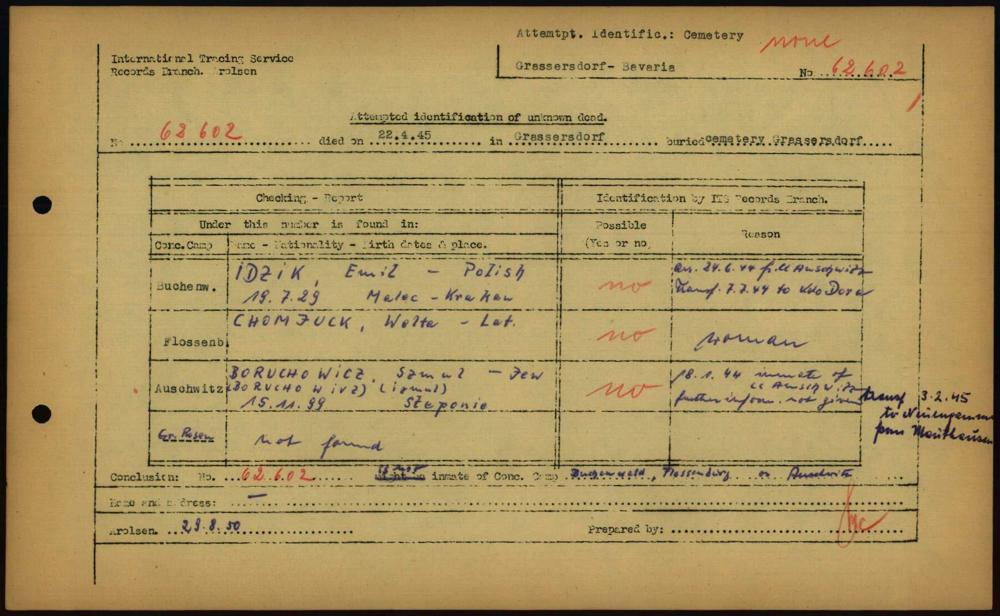 Attemtpt. Identific.: Cemetery none
International Tracing Service
Records Branch. Arolsen
Grassersdorf- Bavaria
No. 62.602
Attempted identification of unknown dead.
No 62 602 died on 22.4.45 in Grassersdorf buried cemetery Grassersdorf
Checking - Report
Identification by ITS Records Branch.
Under this number is found in:
Possible
(Yes or no)
Reason
Conc.Camp Name - Nationality - Birth dates & place.
Buchenw.
IDZIK, Emil - Polish
19.7.29 Malec - Krakau
no
arr. 24.6.44 f. CC Auschwitz
transf. 7.7.44 to Kdo Dora
Flossenb.
CHOMJUCK, Walta - Lat.
no
woman
Auschwitz
BORUCHOWICZ, Szmul - Jew
(BORUCHOWITZ) (izmul)
15.11.99 Steponie
no
18.1.44 inmate of
CC Auschwitz
further inform. not given
transf 3.2.45
to Neuengamme
from Mauthausen
Gr. Rosen
not found
Conclusion: No. 62.602 is not inmate of Conc. Camp Buchenwald, Flossenbürg or Auschwitz
Name and address: -
Arolsen. 29.8.50
Prepared by: